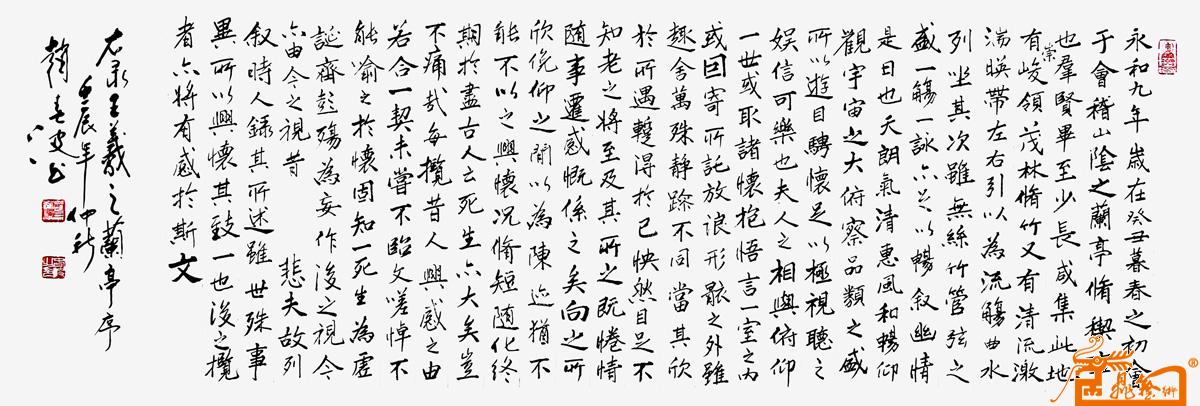 永和九年歲在癸丑暮春之初會
于會稽山陰之蘭亭脩禊事
也羣賢畢至少長咸集此地
有崇峻領茂林脩竹又有清流激
湍暎帶左右引以為流觴曲水
列坐其次雖無絲竹管弦之
盛一觴一詠亦足以暢叙幽情
是日也天朗氣清惠風和暢仰
觀宇宙之大俯察品類之盛
所以遊目騁懷足以極視聽之
娛信可樂也夫人之相與俯仰
一世或取諸懷抱悟言一室之內
或因寄所託放浪形骸之外雖
趣舍萬殊静躁不同當其欣
於所遇蹔得於己怏然自足不
知老之將至及其所之既惓情
隨事遷感慨係之矣向之所
欣俛仰之閒以為陳迹猶不
能不以之興懷況脩短隨化終
期於盡古人云死生亦大矣豈
不痛哉每攬昔人興感之由
若合一契未嘗不臨文嗟悼不
能喻之於懷固知一死生為虛
誕齊彭殤為妄作後之視今
亦由今之視昔 悲夫故列
叙時人錄其所述雖世殊事
異所以興懷其致一也後之攬
者亦將有感於斯文
右录王羲之蘭亭序
壬辰年仲秋